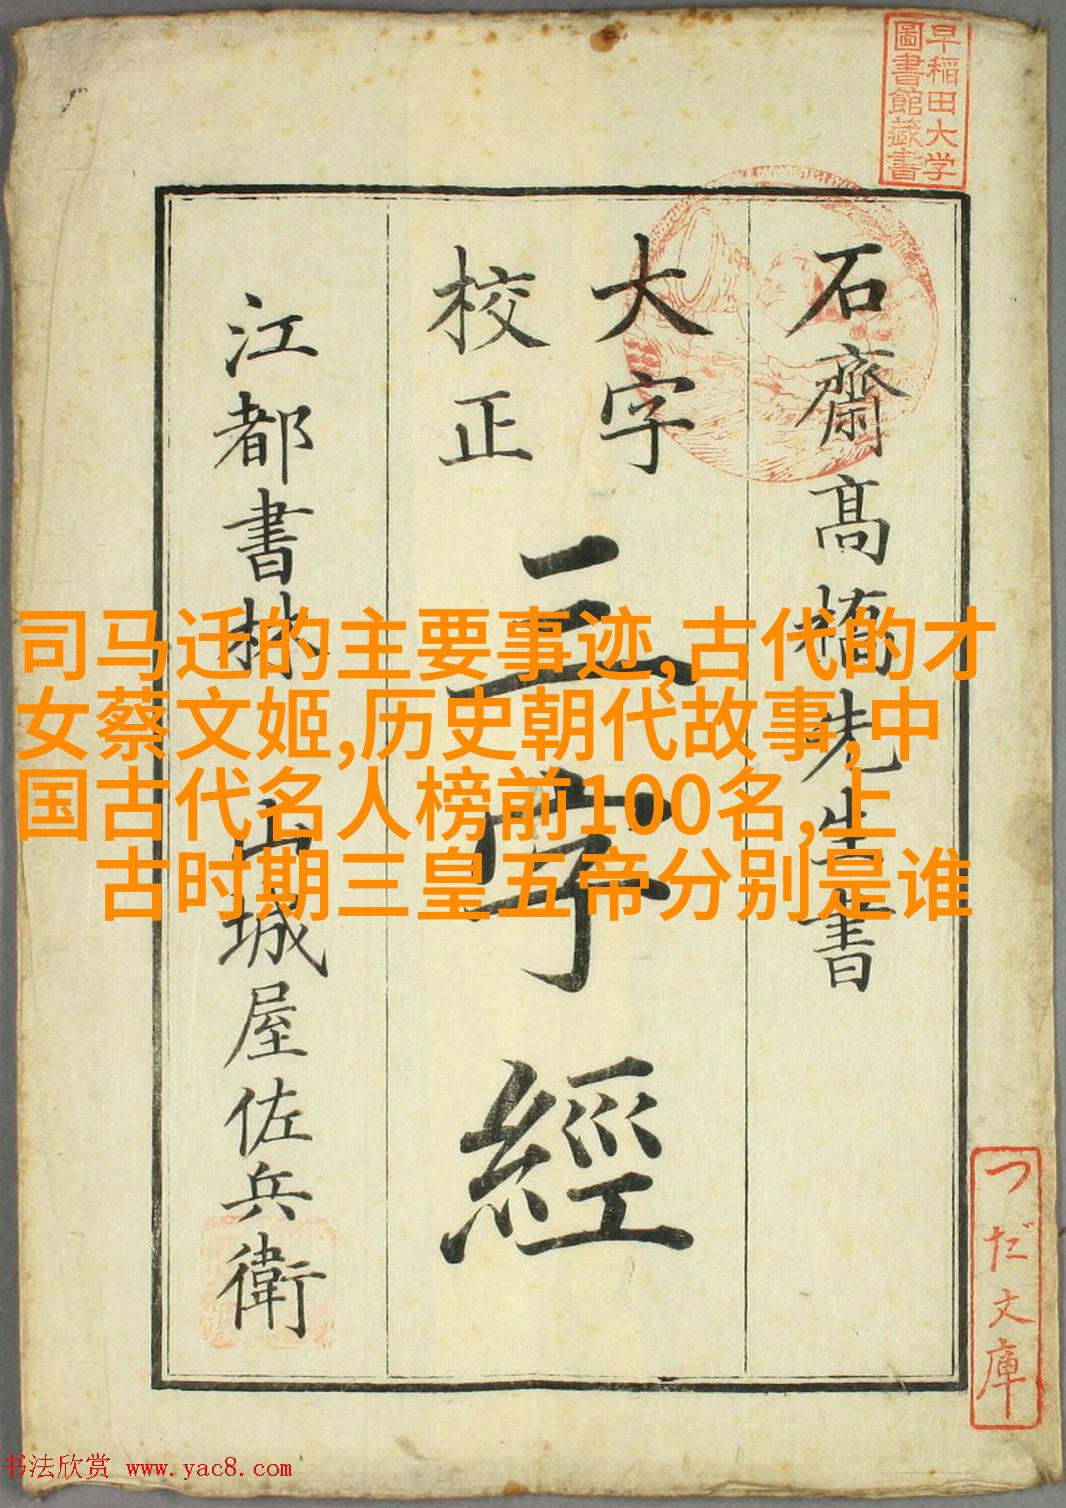 早稲田大学
圖書館藏書
石齋高橋先生書
大字
校正
三字經
江都書林
山城屋佐兵衛
司马迁的主要事迹,古代的才
女蔡文姬,历史朝代故事,中
国古代名人榜前100名,上
古时期三皇五帝分别是谁
つだ文庫
书法欣赏 www.yac8.com